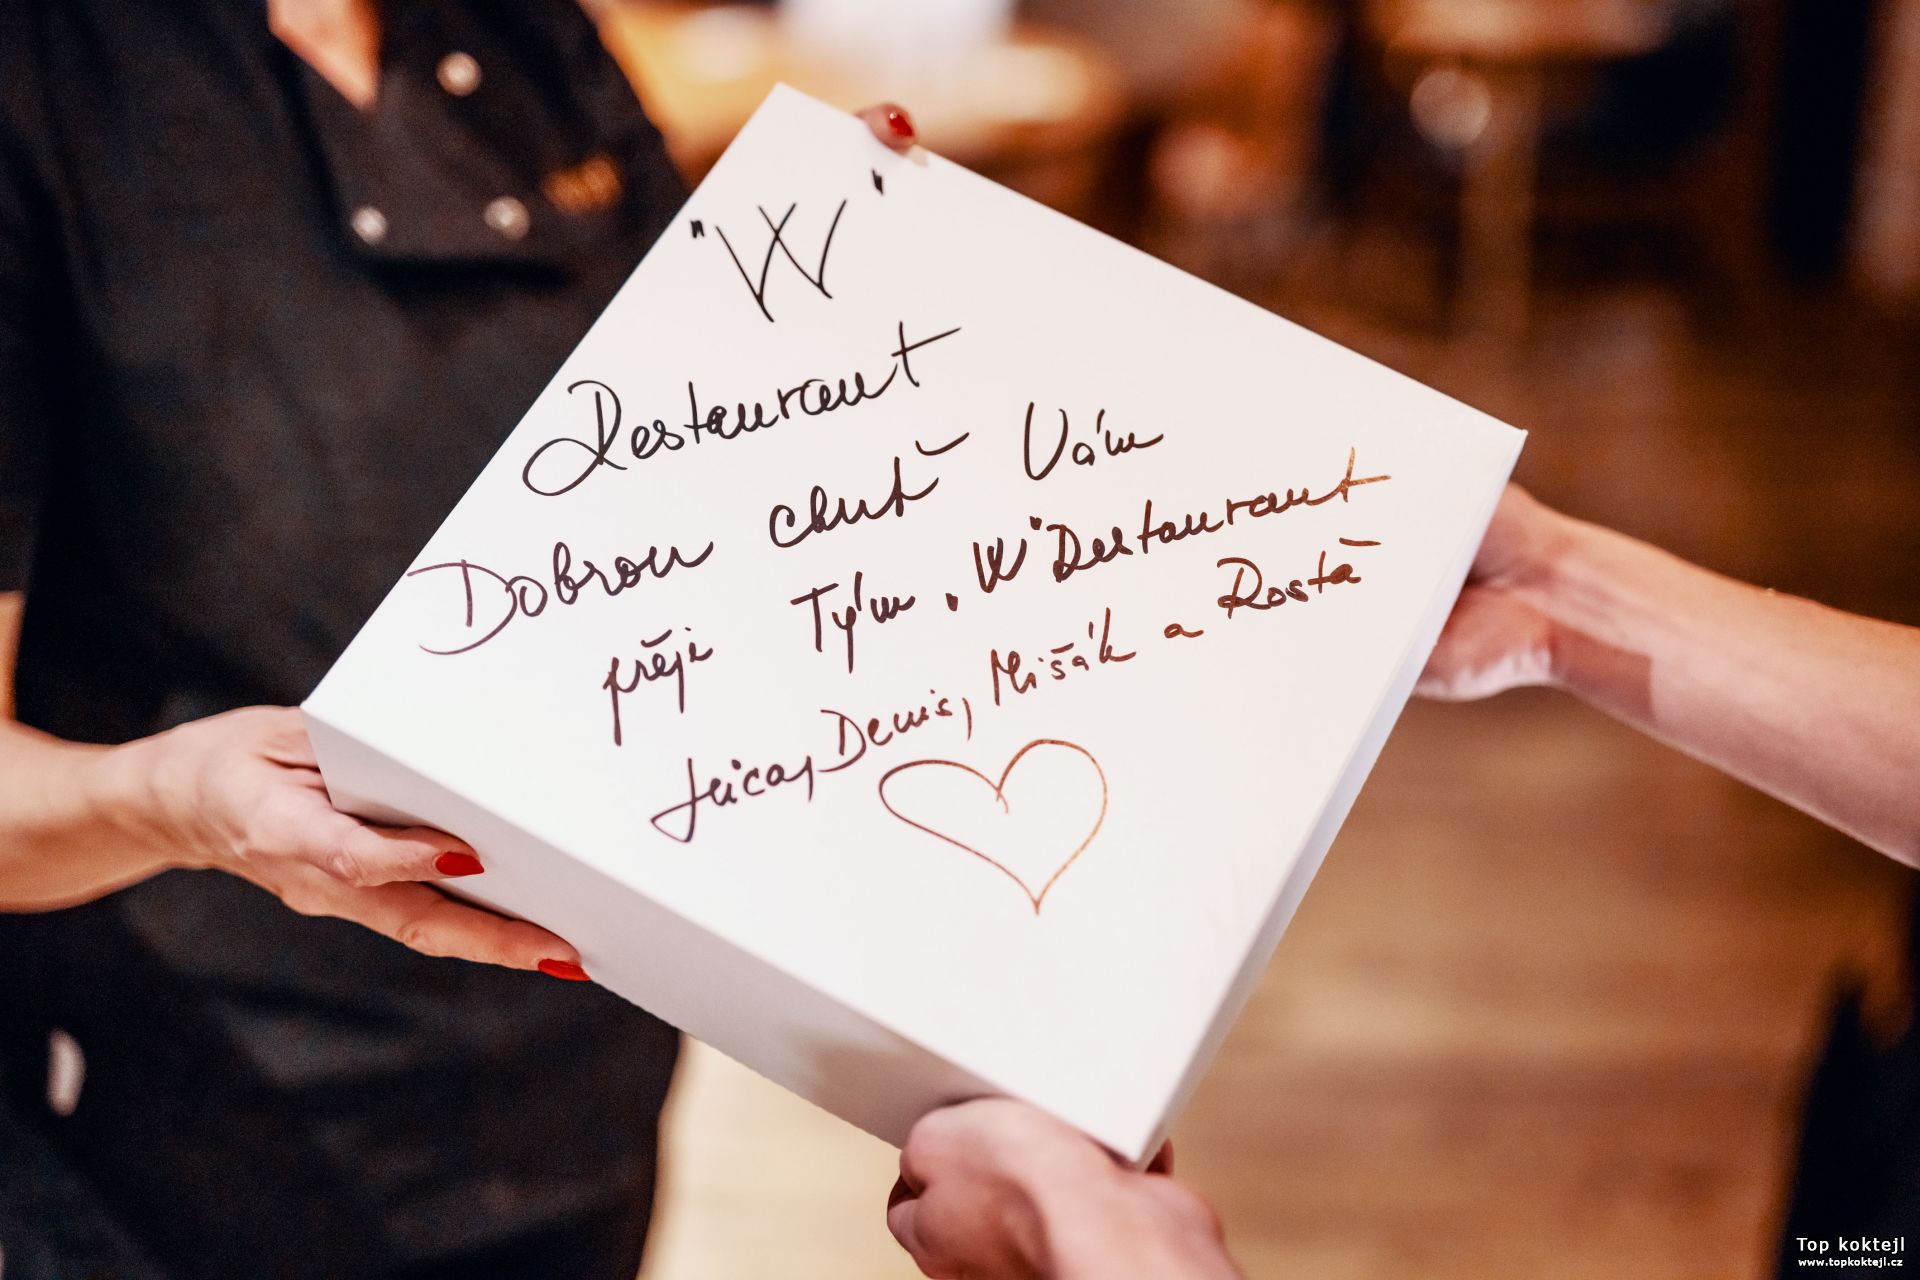 "W"
Restaurant
Dobrou chuť Vám
přeji Tým "W" Restaurant
Denis, Mišák a Rosťa
Top koktejl
www.topkoktejl.cz